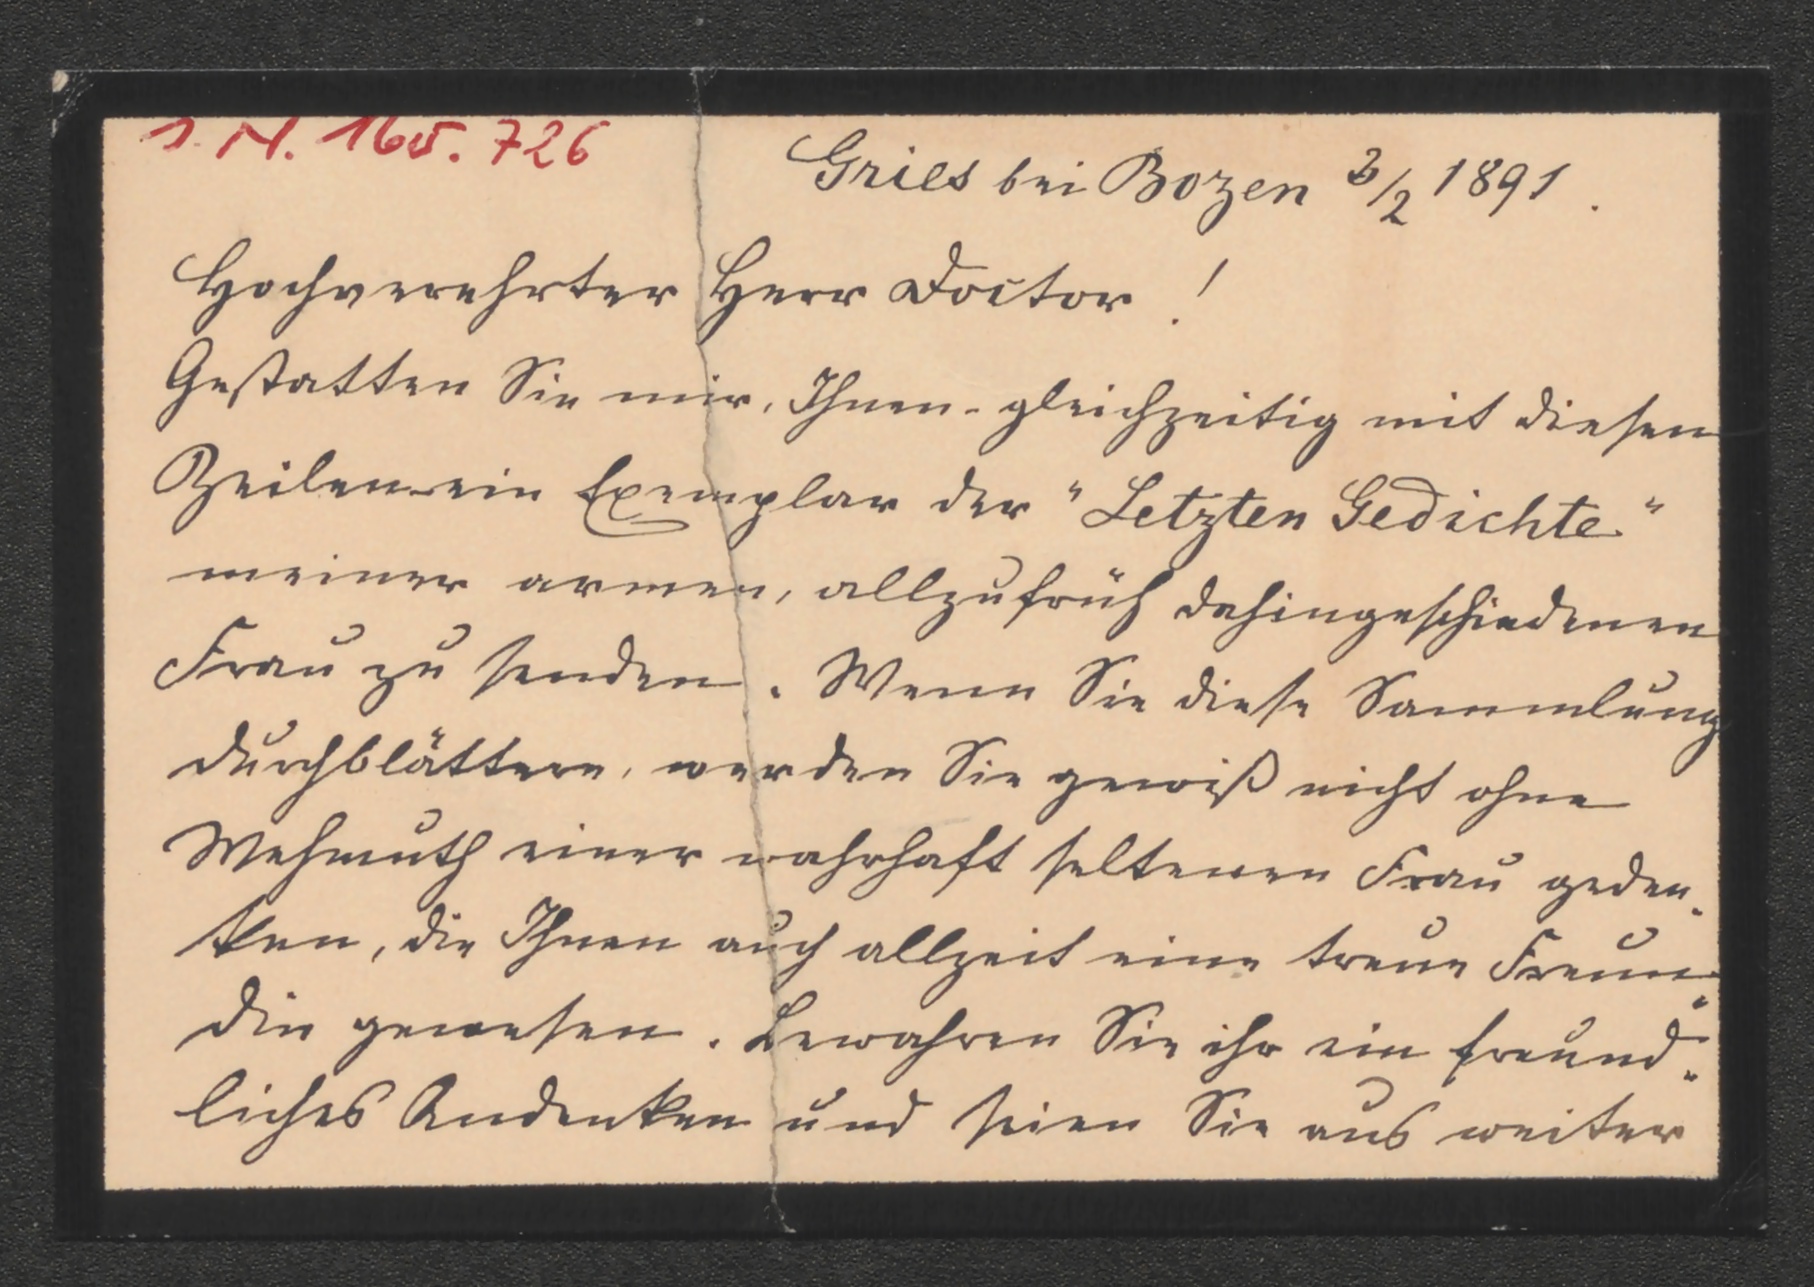 I. N. 165.726
Gries bei Bozen 3/2 1891.
Hochverehrter Herr Doctor!
Gestatten Sie mir, Ihnen - gleichzeitig mit diesen
Zeilen - ein Exemplar der "Letzten Gedichte"
meiner armen, allzufrüh dahingeschiedenen
Frau zu senden. Wenn Sie diese Sammlung
durchblättern, werden Sie gewiß nicht ohne
Wehmuth einer wahrhaft seltenen Frau geden-
ken, die Ihnen auch allzeit eine treue Freun-
din gewesen. Bewahren Sie ihr ein freund-
liches Andenken und seien Sie aus weiter